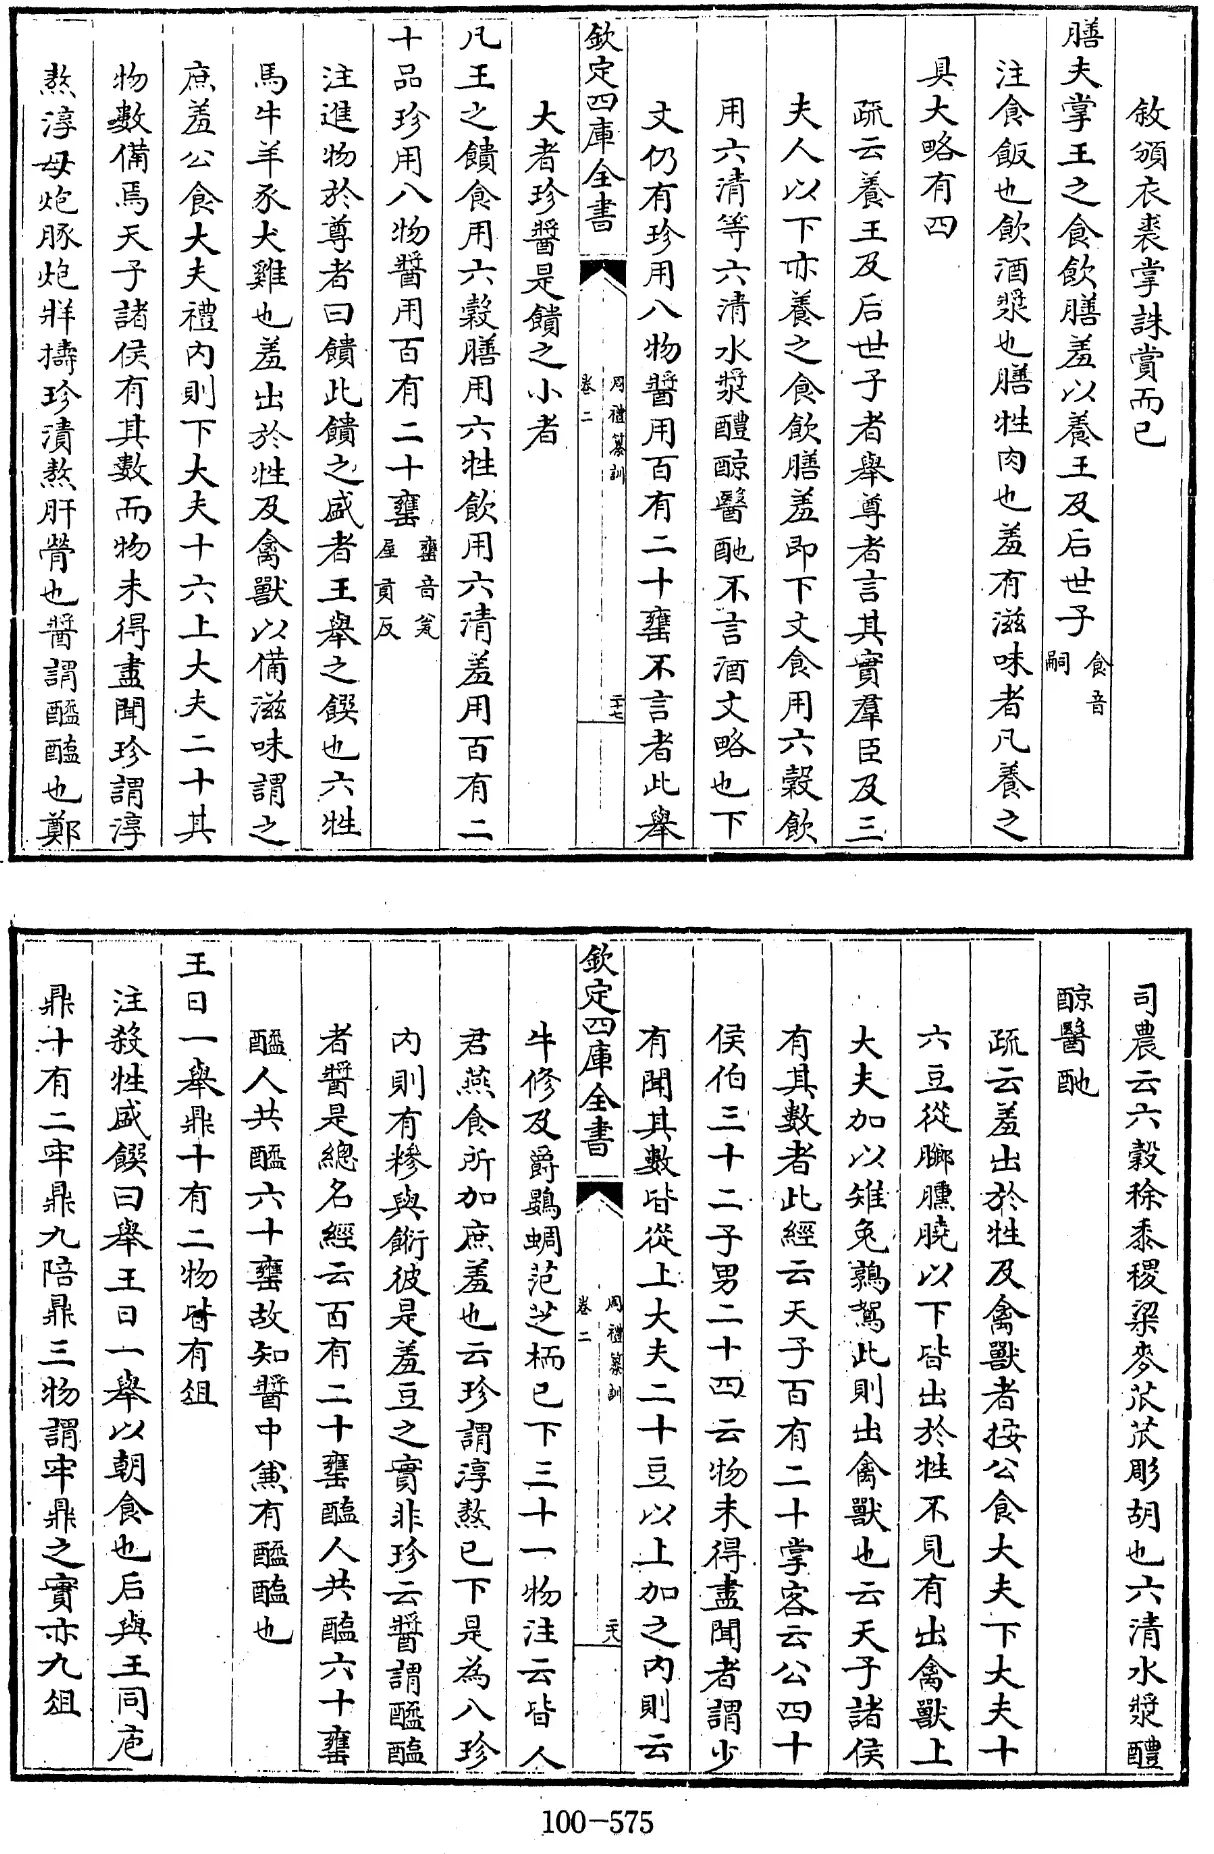 敘頒衣裘掌誅賞而已
膳夫掌王之食飲膳羞以養王及后世子食音嗣
注食飯也飲酒漿也膳牲肉也羞有滋味者凡養之
具大略有四
疏云養王及后世子者舉尊者言其實羣臣及三
夫人以下亦養之食飲膳羞即下文食用六穀飲
用六清等六清水漿醴䣼醫酏不言酒文略也下
文仍有珍用八物醬用百有二十罋不言者此舉
欽定四庫全書
周禮纂訓
卷二
二十七
大者珍醬是饋之小者
凡王之饋食用六穀膳用六牲飲用六清羞用百有二
十品珍用八物醬用百有二十罋罋音瓮屋貢反
注進物於尊者曰饋此饋之盛者王舉之饌也六牲
馬牛羊豕犬雞也羞出於牲及禽獸以備滋味謂之
庶羞公食大夫禮內則下大夫十六上大夫二十其
物數備焉天子諸侯有其數而物未得盡聞珍謂淳
熬淳母炮豚炮牂擣珍漬熬肝膋也醬謂醯醢也鄭
司農云六穀稌黍稷粱麥苽苽彫胡也六清水漿醴
䣼醫酏
疏云羞出於牲及禽獸者按公食大夫下大夫十
六豆從膷臐膮以下皆出於牲不見有出禽獸上
大夫加以雉兔鶉鴽此則出禽獸也云天子諸侯
有其數者此經云天子百有二十掌客云公四十
侯伯三十二子男二十四云物未得盡聞者謂少
有聞其數皆從上大夫二十豆以上加之內則云
欽定四庫全書
周禮纂訓
卷二
二十八
牛修及爵鷃蜩范芝栭已下三十一物注云皆人
君燕食所加庶羞也云珍謂淳熬已下是為八珍
內則有糝與䬧彼是羞豆之實非珍云醬謂醯醢
者醬是總名經云百有二十罋醢人共醢六十罋
醯人共醯六十罋故知醬中兼有醯醢也
王日一舉鼎十有二物皆有俎
注殺牲盛饌曰舉王日一舉以朝食也后與王同庖
鼎十有二牢鼎九陪鼎三物謂牢鼎之實亦九俎
100-575